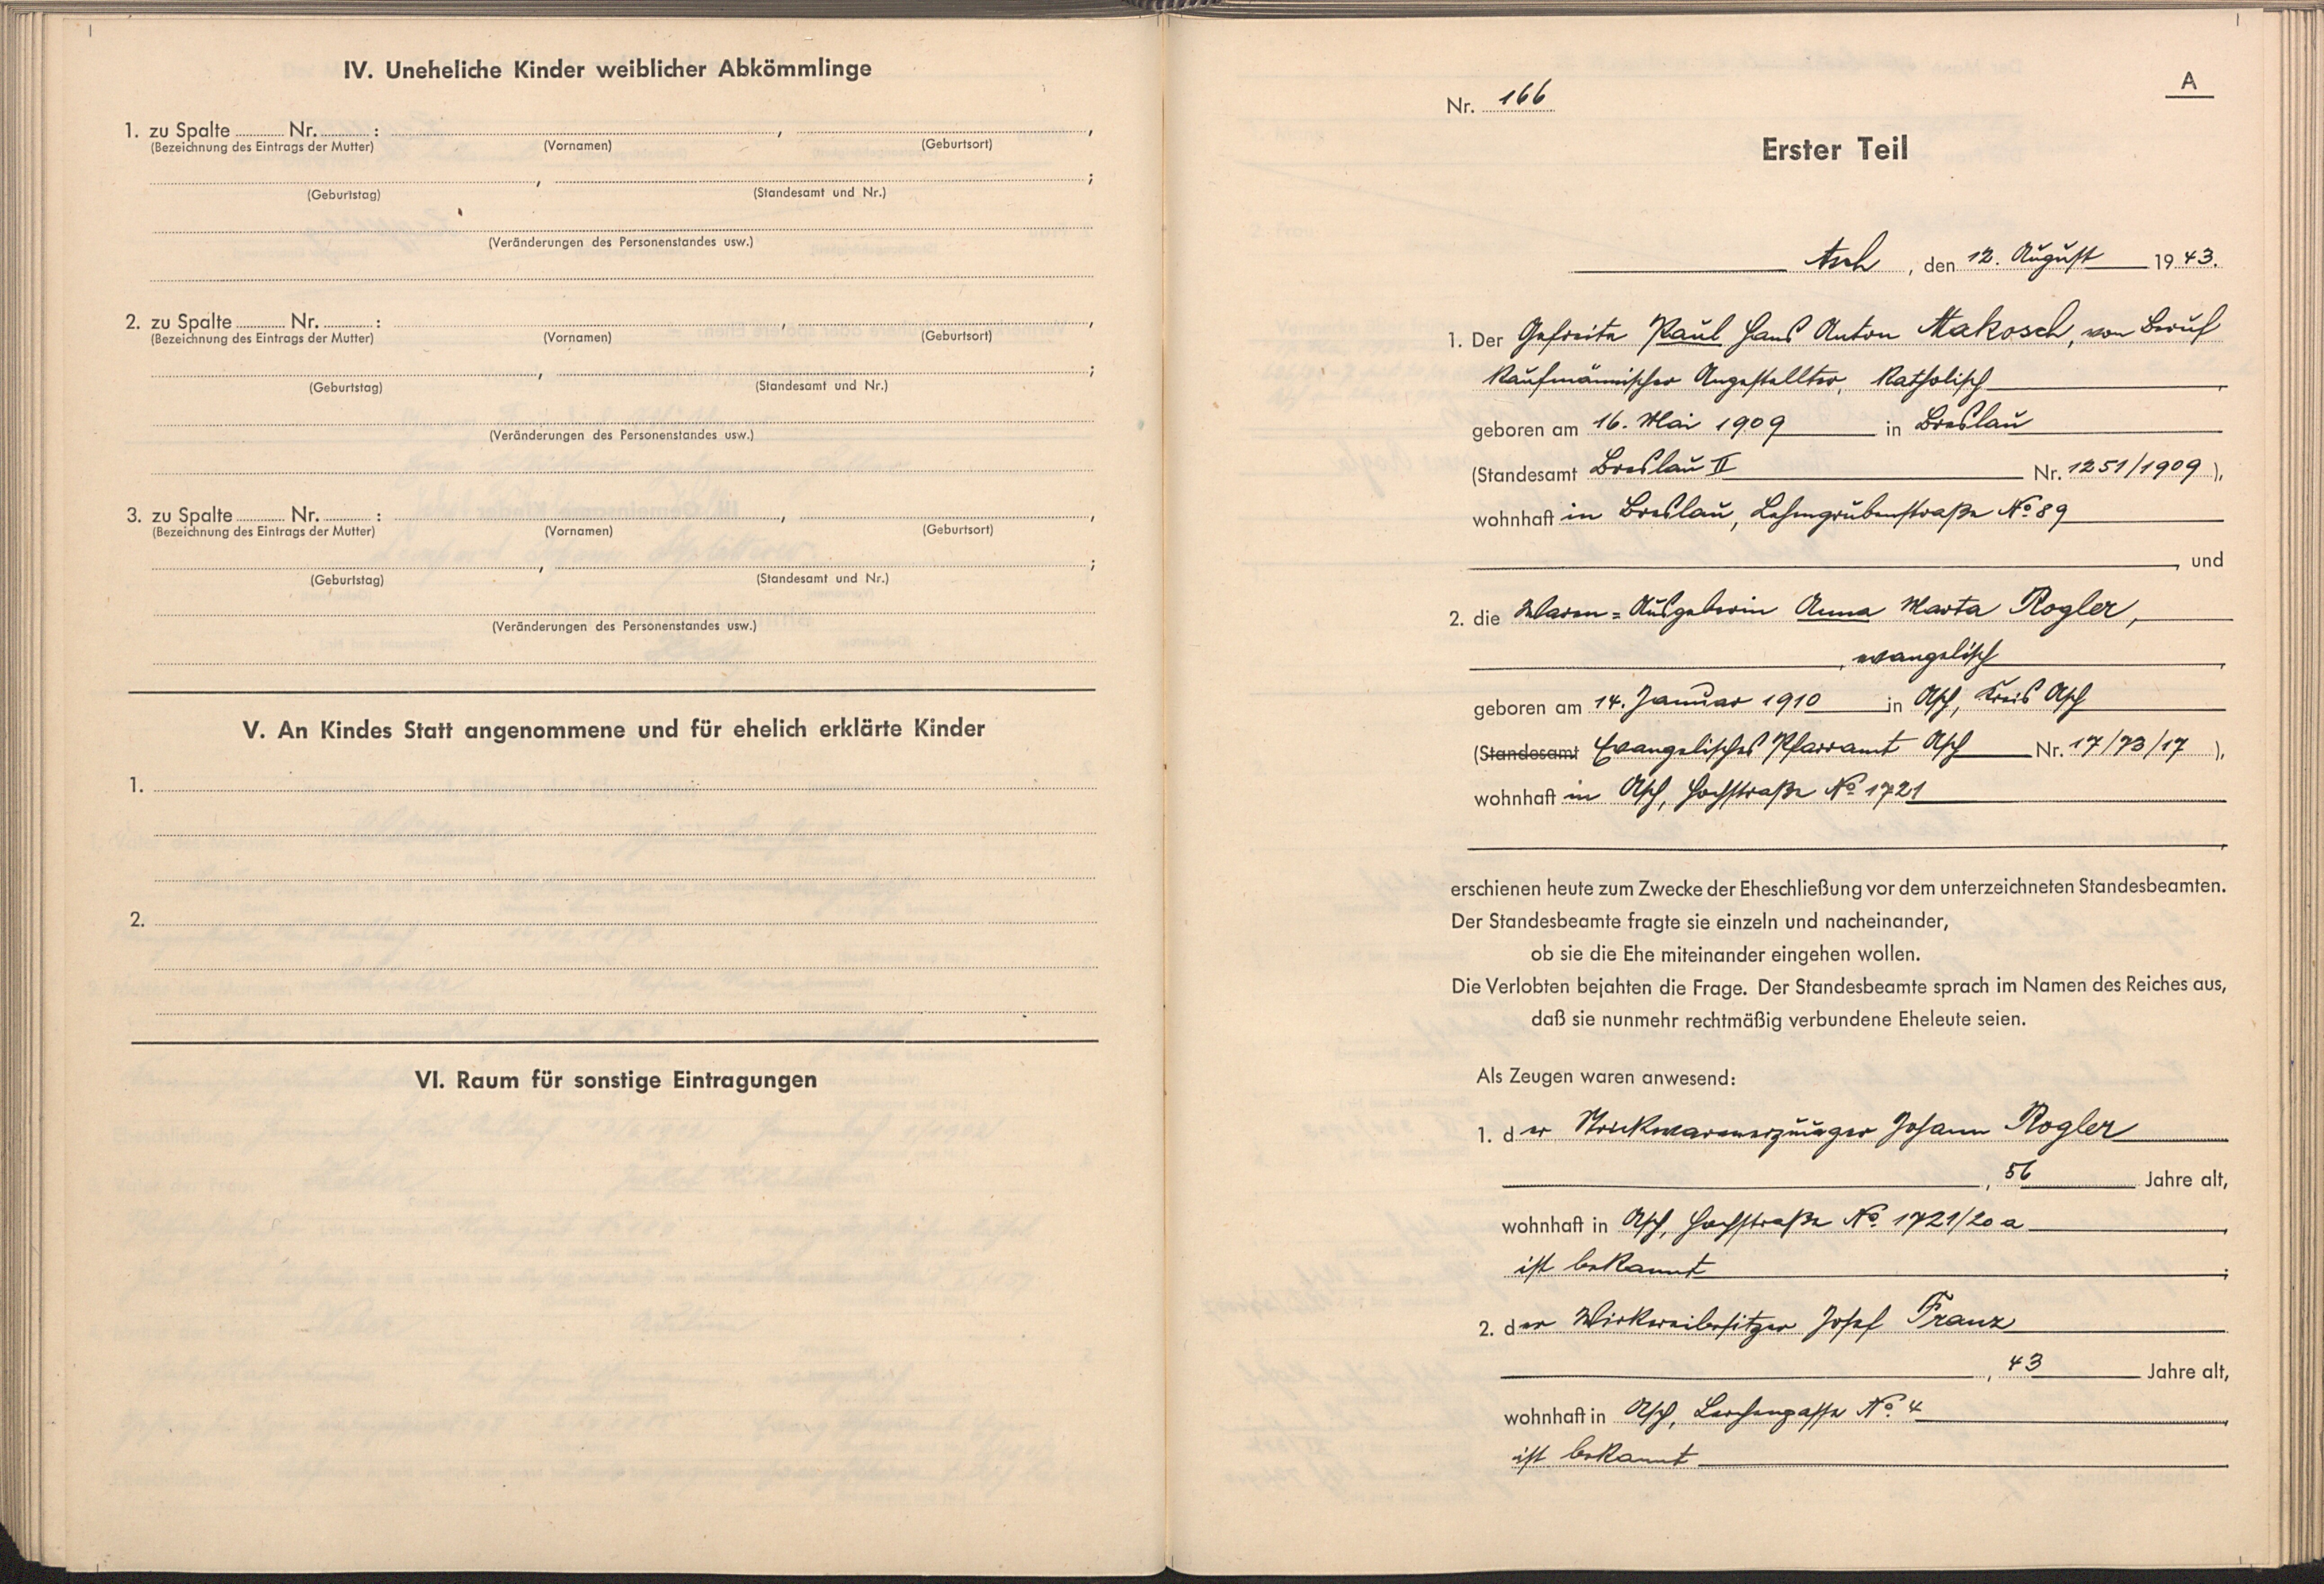 IV. Uneheliche Kinder weiblicher Abkömmlinge
1. zu Spalte ........ Nr. ........ : ........ , ........ ,
(Bezeichnung des Eintrags der Mutter) (Vornamen) (Geburtsort)
........ , ........ ;
(Geburtstag) (Standesamt und Nr.)
(Veränderungen des Personenstandes usw.)
2. zu Spalte ........ Nr. ........ : ........ , ........ ,
(Bezeichnung des Eintrags der Mutter) (Vornamen) (Geburtsort)
........ , ........ ;
(Geburtstag) (Standesamt und Nr.)
(Veränderungen des Personenstandes usw.)
3. zu Spalte ........ Nr. ........ : ........ , ........ ,
(Bezeichnung des Eintrags der Mutter) (Vornamen) (Geburtsort)
........ , ........ ;
(Geburtstag) (Standesamt und Nr.)
(Veränderungen des Personenstandes usw.)
V. An Kindes Statt angenommene und für ehelich erklärte Kinder
1.
2.
VI. Raum für sonstige Eintragungen
A
Nr. 166
Erster Teil
Asch, den 12. August 1943.
1. Der Gefreite Paul Hans Anton Makosch, von Beruf
kaufmännischer Angestellter, katholisch,
geboren am 16. Mai 1909 in Breslau
(Standesamt Breslau II Nr. 1251/1909),
wohnhaft in Breslau, Lehmgrubenstraße No 89
, und
2. die Waren-Ausgeberin Anna Marta Rogler,
, evangelisch,
geboren am 14. Januar 1910 in Asch, Kreis Asch
(Standesamt Evangelisches Pfarramt Asch Nr. 17/73/17),
wohnhaft in Asch, Hochstraße No 1721
,
erschienen heute zum Zwecke der Eheschließung vor dem unterzeichneten Standesbeamten.
Der Standesbeamte fragte sie einzeln und nacheinander,
ob sie die Ehe miteinander eingehen wollen.
Die Verlobten bejahten die Frage. Der Standesbeamte sprach im Namen des Reiches aus,
daß sie nunmehr rechtmäßig verbundene Eheleute seien.
Als Zeugen waren anwesend:
1. der Strickwarenerzeuger Johann Rogler
, 56 Jahre alt,
wohnhaft in Asch, Hochstraße No 1721/20a,
ist bekannt;
2. der Wirkereibesitzer Josef Franz
, 43 Jahre alt,
wohnhaft in Asch, Lerchengasse No 4,
ist bekannt